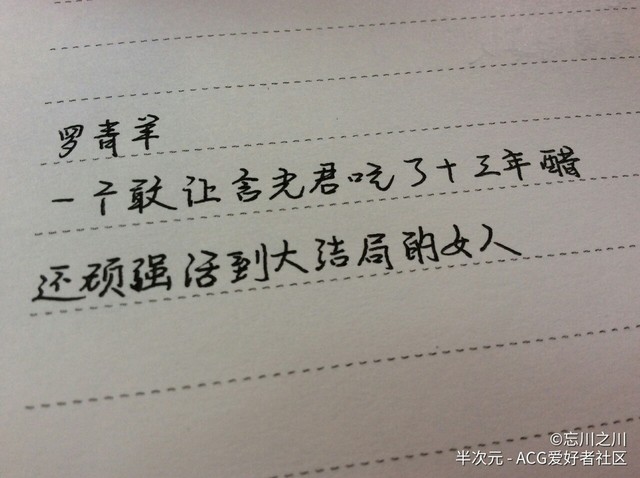 罗青羊
一个敢让含光君吃了十三年醋
还顽强活到大结局的女人
©忘川之川
半次元 - ACG爱好者社区